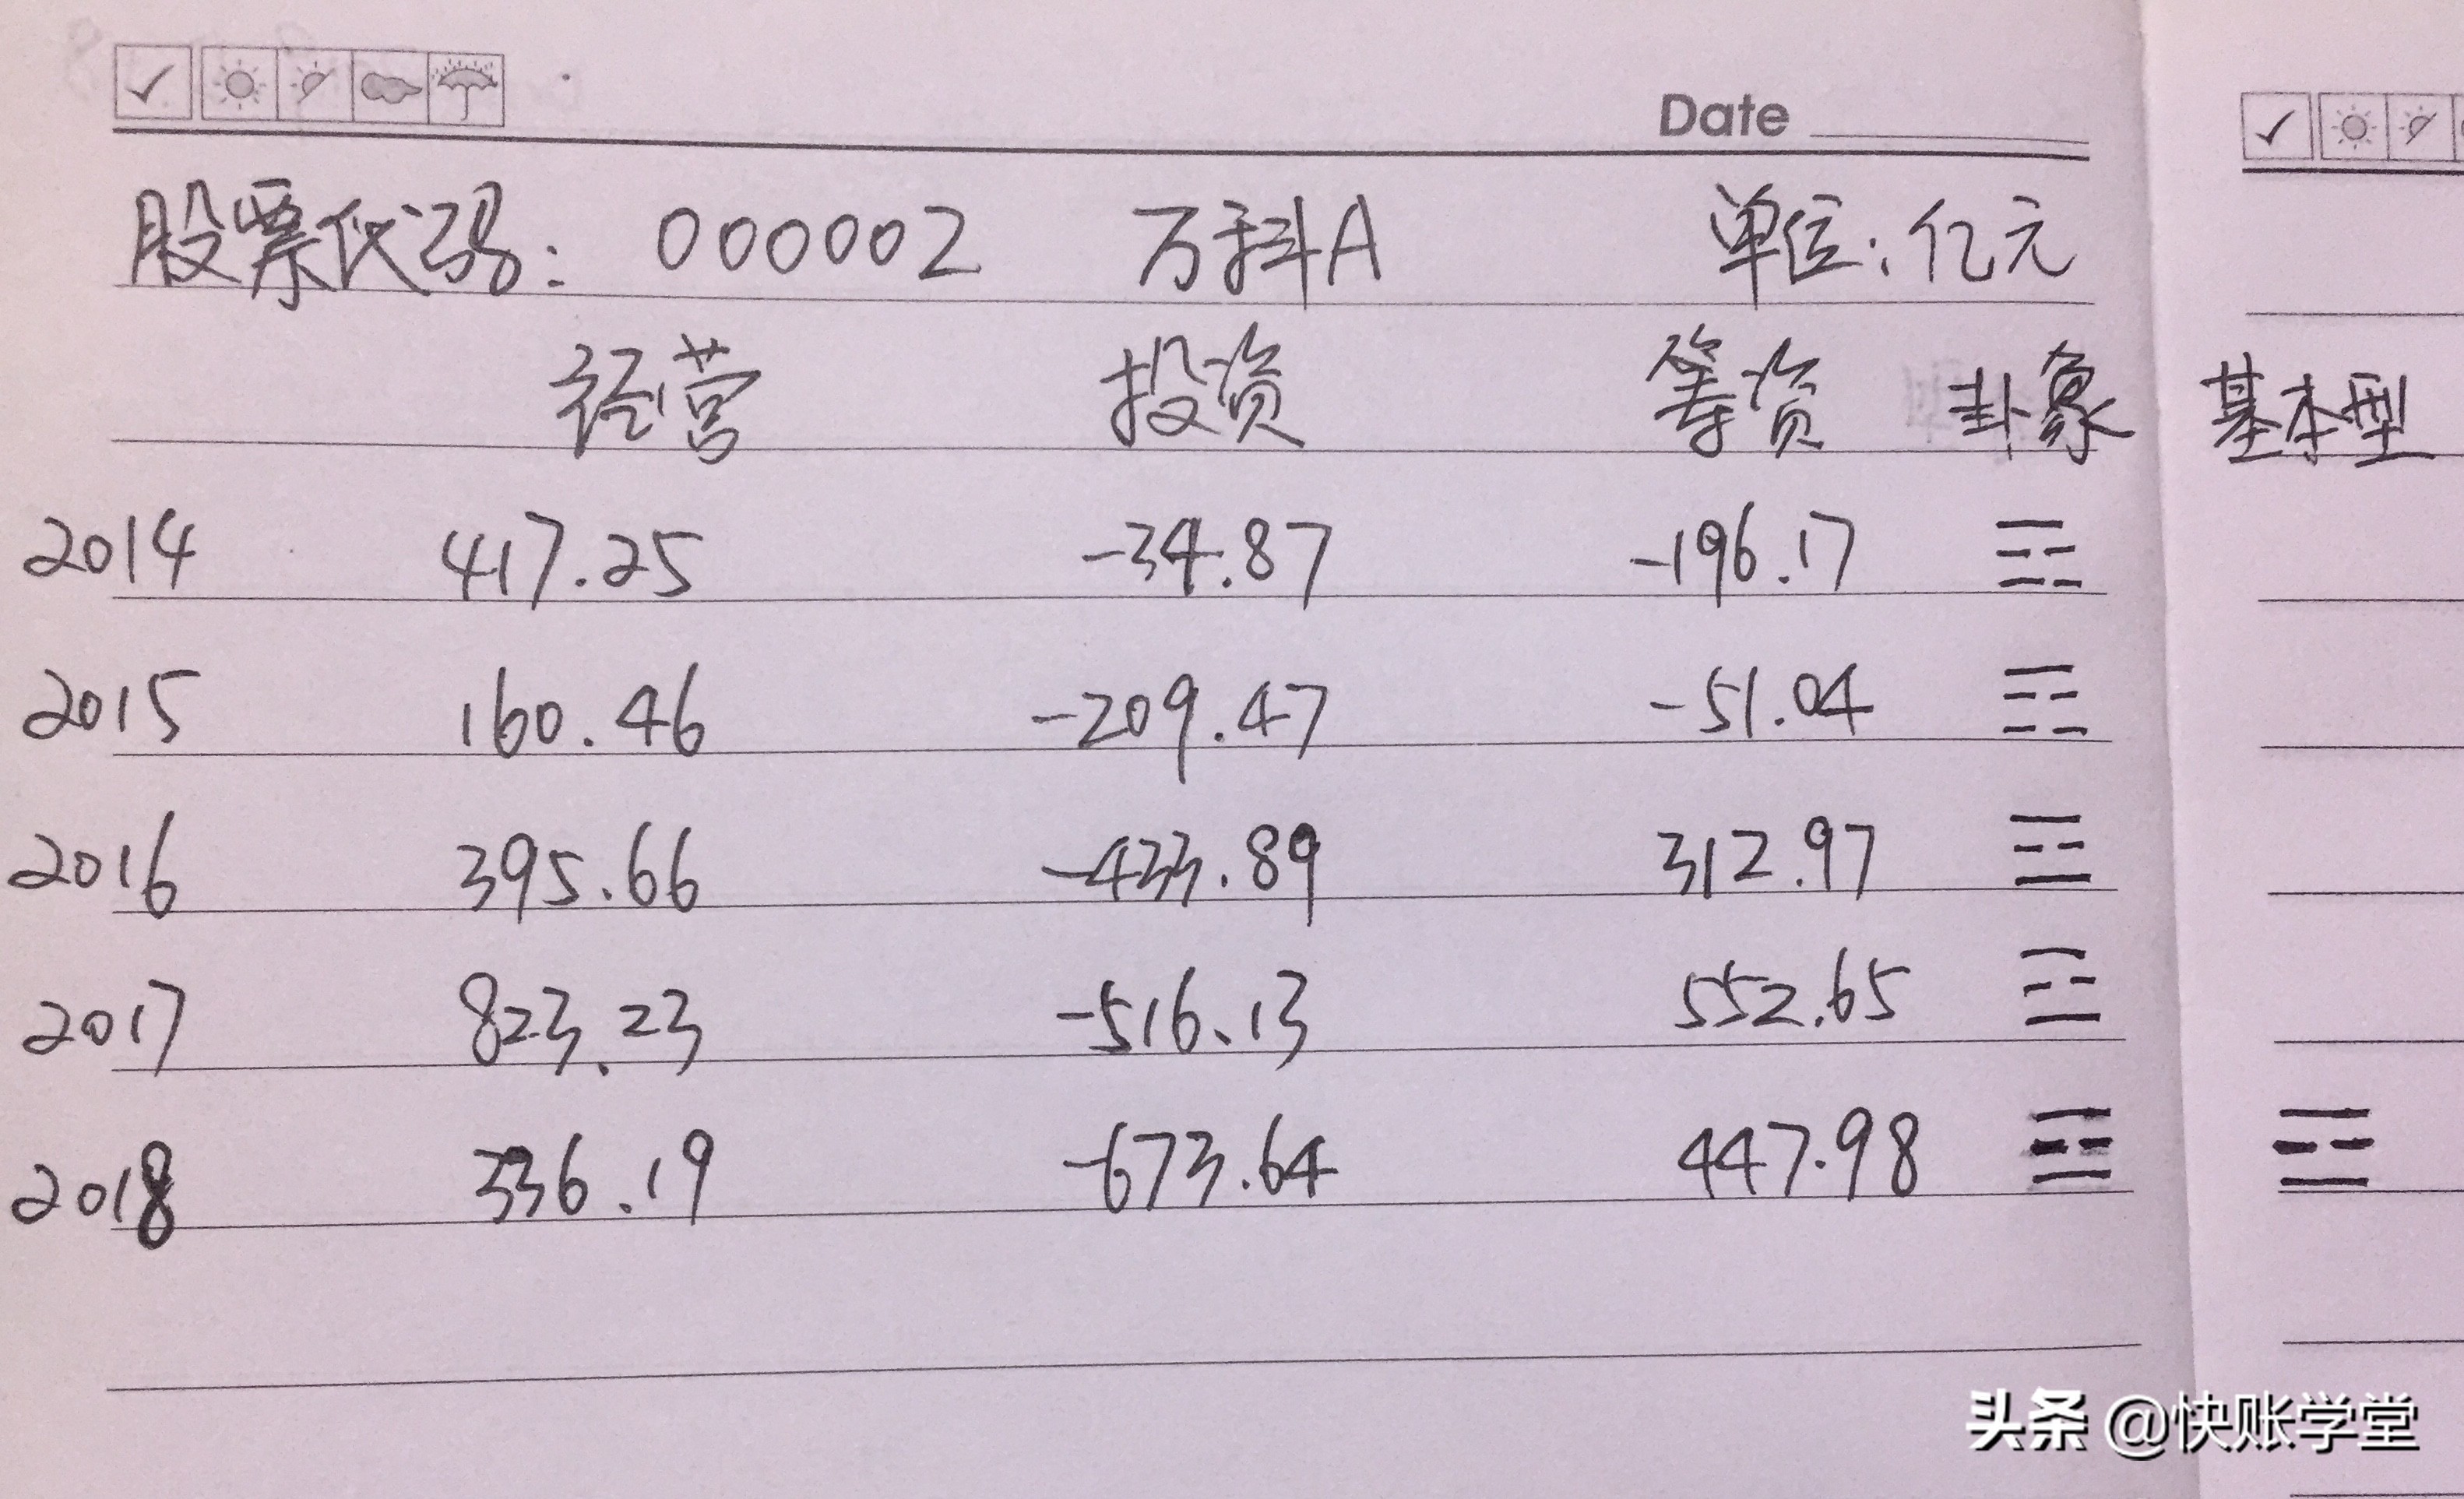 Date
股票代码: 000002 万科A 单位:亿元
经营 投资 筹资 卦象 基本型
2014 417.25 -34.87 -196.17 ☶
2015 160.46 -209.47 -51.04 ☶
2016 395.66 -433.89 312.97 ☲
2017 823.23 -516.13 552.65 ☲
2018 336.19 -673.64 447.98 ☲ ☲
头条 @快账学堂